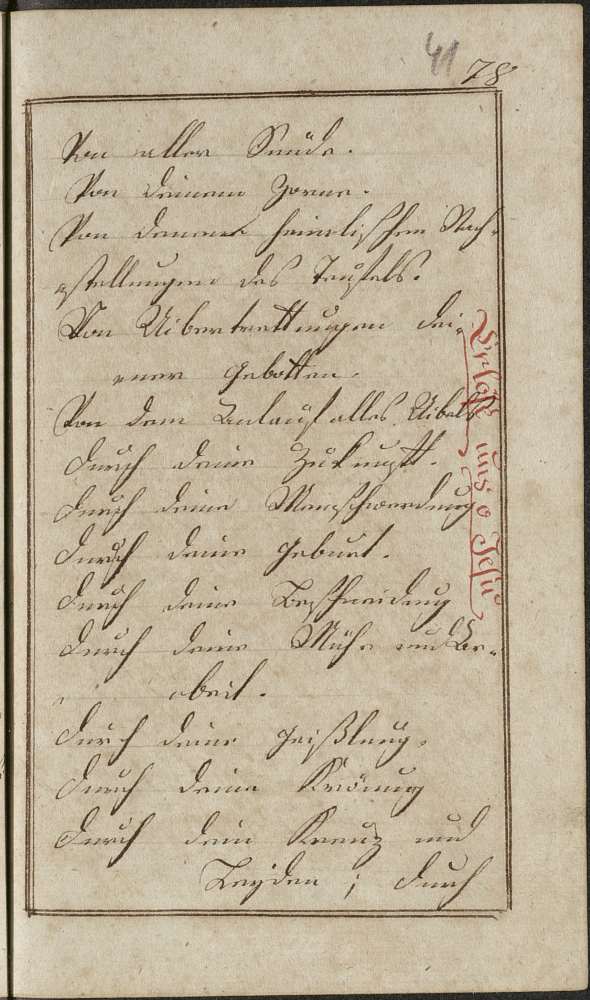 41
78
Von aller Sünde.
Von deinem Zorne.
Von denen heimlischen Nach-
stellungen des Teufels.
Von Uibertrettungen dei-
ener Gebotten.
Von dem Anlauf alles Uibels
Durch deine Zukunft.
Durch deine Menschwerdung
Durch deine Geburt.
Durch deine Beschneidung
Durch deine Mühe und Ar-
abeit.
Durch deine Geißlung.
Durch deine Krönung
Durch dein Kreuz und
Leyden ; Durch
Erlöße uns o Jesu